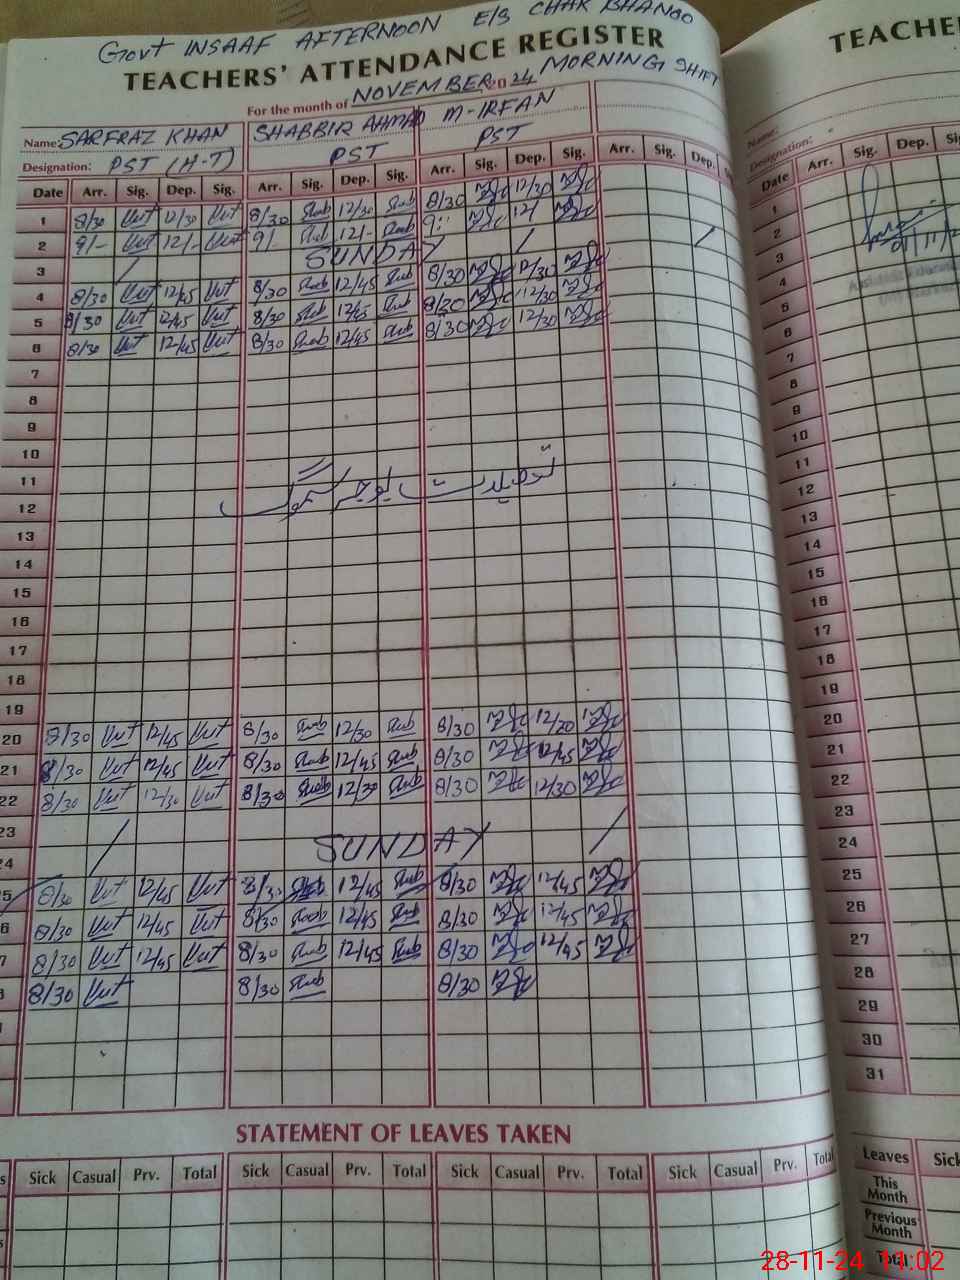 Govt INSAAF AFTERNOON E/S CHAK BHANGO
TEACHERS' ATTENDANCE REGISTER
For the month of NOVEMBER 20 24 MORNING SHIFT
Name: SARFRAZ KHAN SHABBIR AHMAD M-IRFAN
Designation: PST (H-T) PST PST
Date Arr. Sig. Dep. Sig. Arr. Sig. Dep. Sig. Arr. Sig. Dep. Sig. Arr. Sig. Dep.
1 8/30 12/30 8/30 12/30 8/30 12/30
2 9/- 12/- 9/- 12/- 9:- 12/
3 SUNDAY
4 8/30 12/45 8/30 12/45 8/30 12/30
5 8/30 12/45 8/30 12/45 8/30 12/30
6 8/30 12/45 8/30 12/45 8/30 12/30
7
8
9
10
11
12
13
14
15
16
17
18
19
20 8/30 12/45 8/30 12/30 8/30 12/20
21 8/30 12/45 8/30 12/45 8/30 12/45
22 8/30 12/30 8/30 12/30 8/30 12/30
23
24 SUNDAY
5 8/30 12/45 8/30 12/45 8/30 12/45
6 8/30 12/45 8/30 12/45 8/30 12/45
7 8/30 12/45 8/30 12/45 8/30 12/45
8/30 8/30 8/30
STATEMENT OF LEAVES TAKEN
Sick Casual Prv. Total Sick Casual Prv. Total Sick Casual Prv. Total Sick Casual Prv. Total
TEACHE
Name:
Designation:
Date Arr. Sig. Dep.
1
2
3
4
5
6
7
8
9
10
11
12
13
14
15
16
17
18
19
20
21
22
23
24
25
26
27
28
29
30
31
Leaves Sick
This Month
Previous Month
Total
28-11-24 11:02